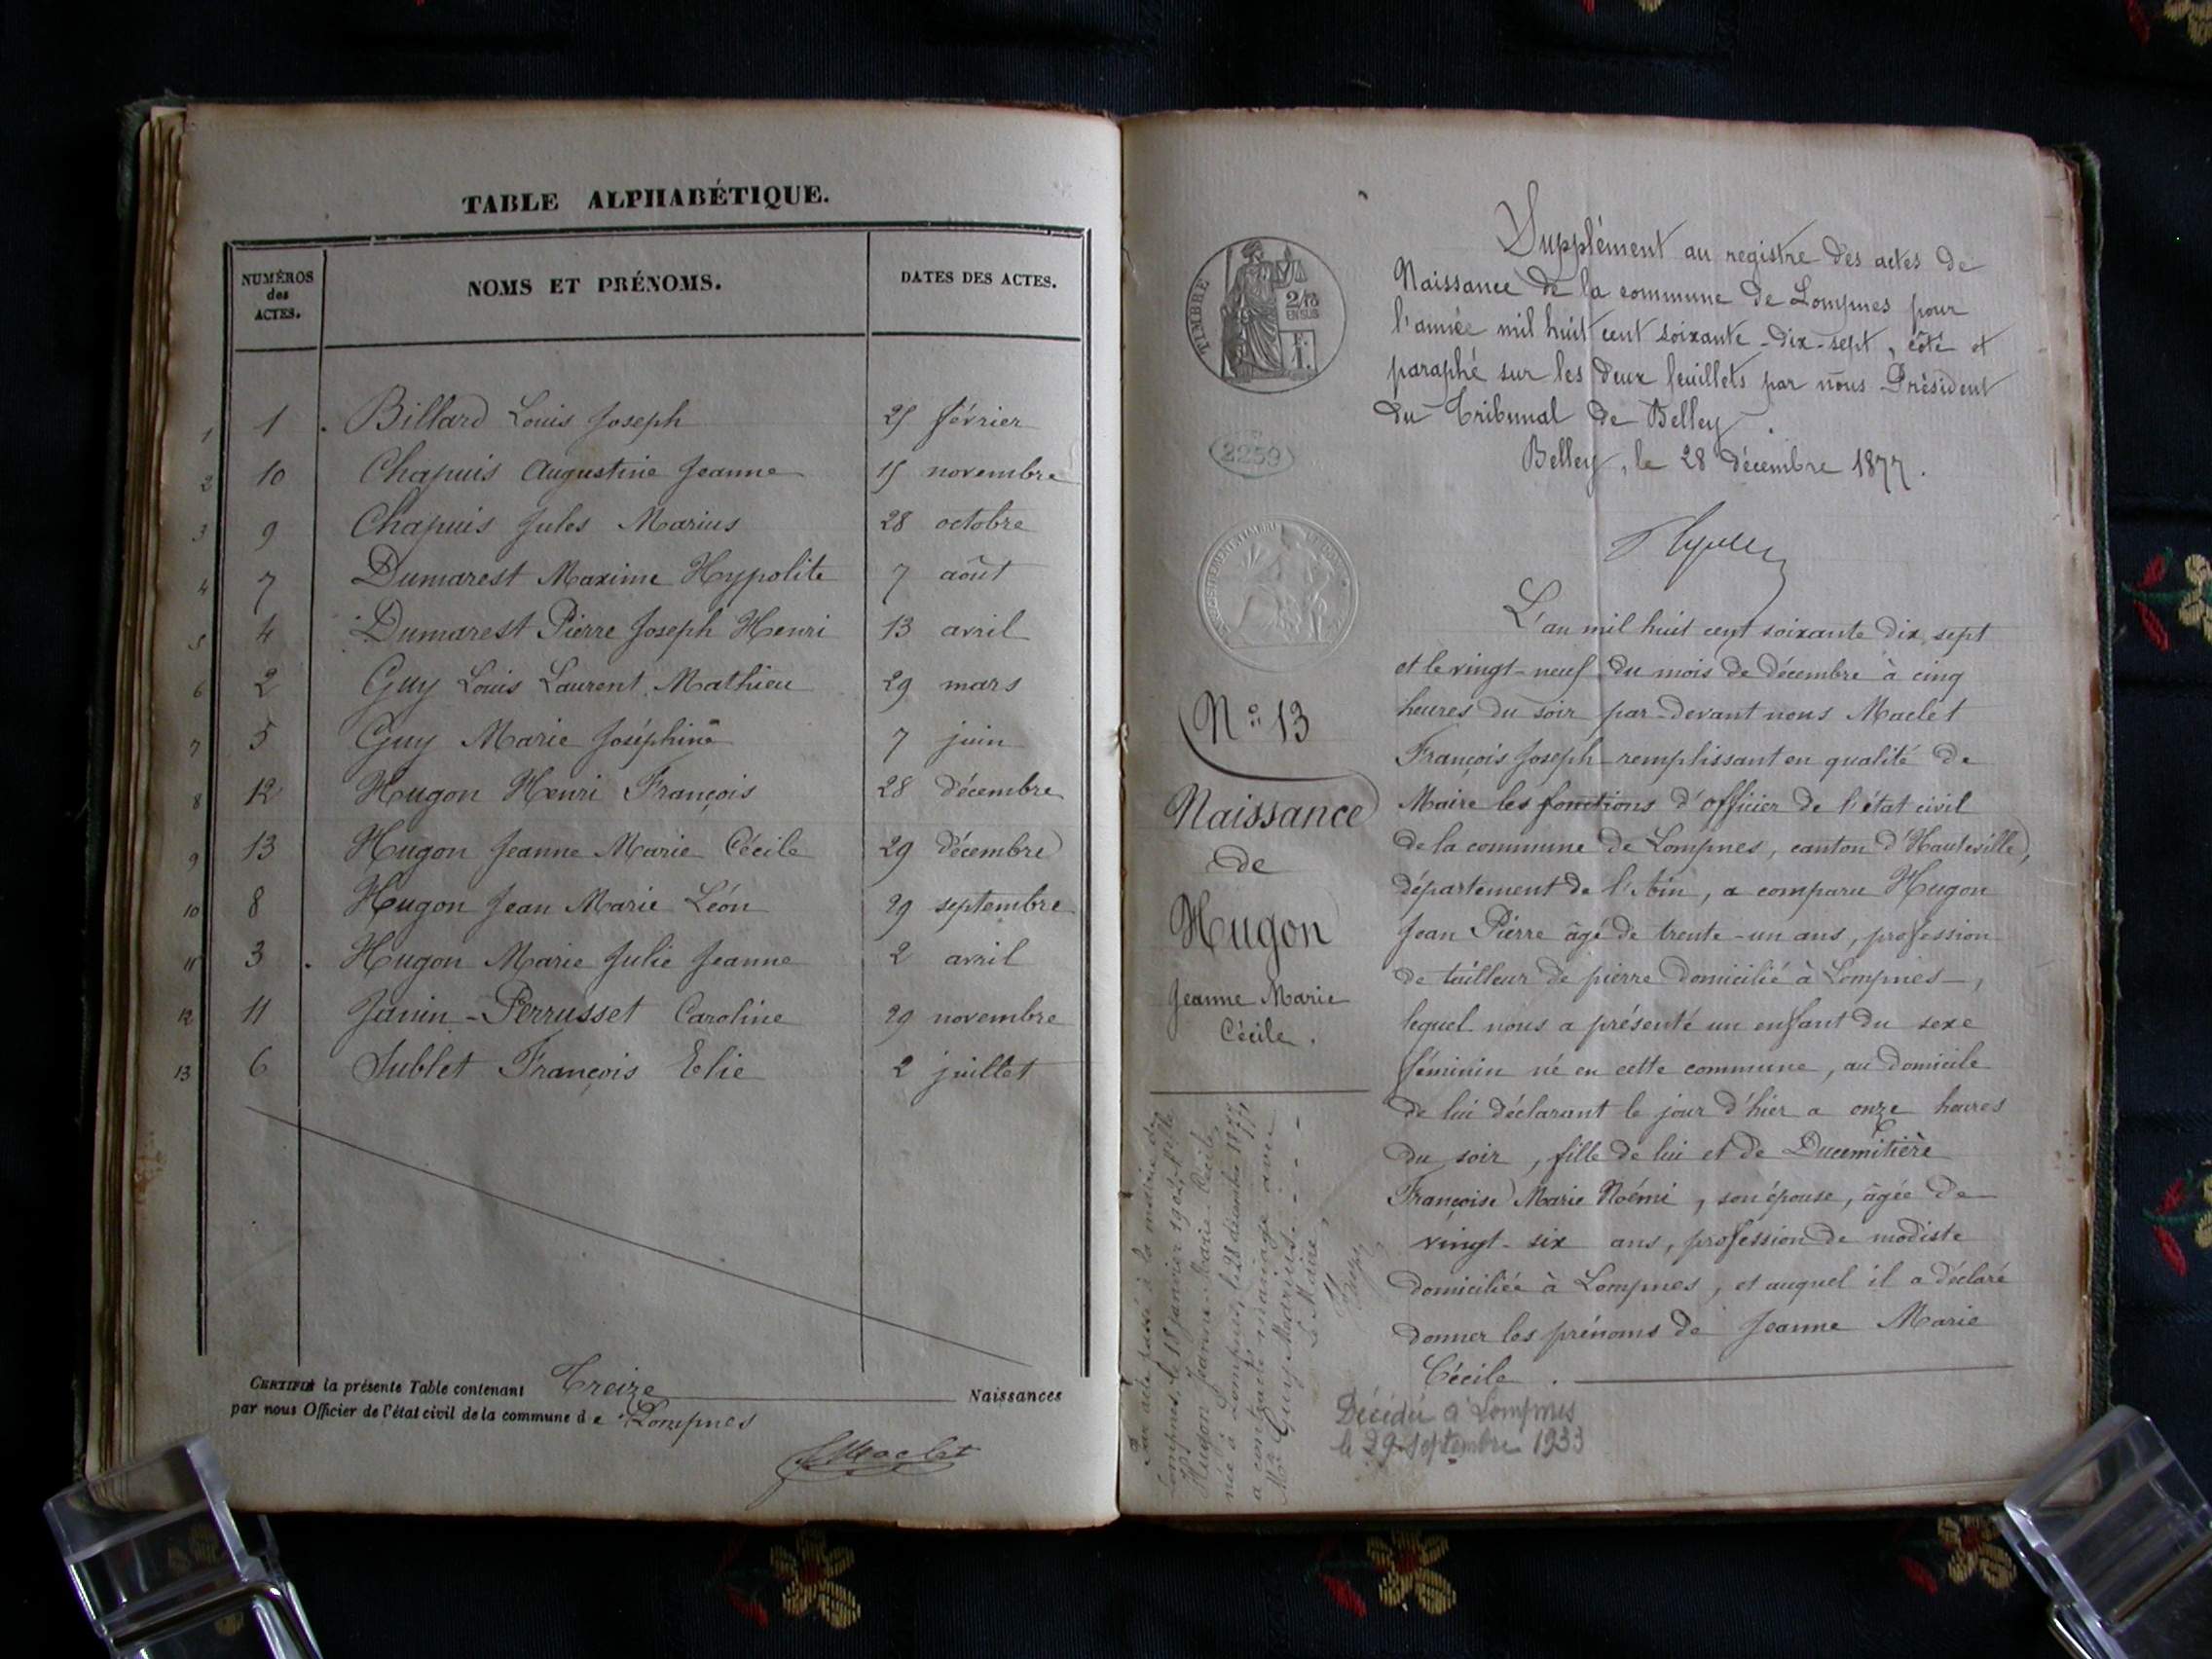 TABLE ALPHABÉTIQUE.
NUMÉROS des ACTES. NOMS ET PRÉNOMS. DATES DES ACTES.
1 1 Billard Louis Joseph 25 février
2 10 Chapuis Augustine Jeanne 15 novembre
3 9 Chapuis Jules Marius 28 octobre
4 7 Dumarest Maxime Hypolite 7 août
5 4 Dumarest Pierre Joseph Henri 13 avril
6 2 Guy Louis Laurent Mathieu 29 mars
7 5 Guy Marie Joséphine 7 juin
8 12 Hugon Henri François 28 décembre
9 13 Hugon Jeanne Marie Cécile 29 décembre
10 8 Hugon Jean Marie Léon 29 septembre
11 3 Hugon Marie Julie Jeanne 2 avril
12 11 Janin-Perrusset Caroline 29 novembre
13 6 Sublet François Elie 2 juillet
CERTIFIÉ la présente Table contenant Treize Naissances
par nous Officier de l'état civil de la commune de Lompnes
Maclet
TIMBRE
2/10
EN SUS
F.
1.
2259
Supplément au registre des actes de
Naissance de la commune de Lompnes pour
l'année mil huit cent soixante-dix-sept, coté et
paraphé sur les deux feuillets par nous Président
du Tribunal de Belley.
Belley, le 28 décembre 1877.
No 13
Naissance
de
Hugon
Jeanne Marie
Cécile.
L'an mil huit cent soixante dix sept
et le vingt-neuf du mois de décembre à cinq
heures du soir par-devant nous Maclet
François Joseph remplissant en qualité de
Maire les fonctions d'officier de l'état civil
de la commune de Lompnes, canton d'Hauteville,
département de l'Ain, a comparu Hugon
Jean Pierre âgé de trente-un ans, profession
de tailleur de pierre domicilié à Lompnes,
lequel nous a présenté un enfant du sexe
féminin né en cette commune, au domicile
de lui déclarant le jour d'hier a onze heures
du soir, fille de lui et de Ducemitière
Françoise Marie Noémi, son épouse, âgée de
vingt-six ans, profession de modiste
domiciliée à Lompnes, et auquel il a déclaré
donner les prénoms de Jeanne Marie
Cécile.
Décédée à Lompnes
le 29 septembre 1933
Par acte passé à la mairie de
Lompnes, le 18 janvier 1902, Melle
Hugon Jeanne-Marie-Cécile,
née à Lompnes, le 28 décembre 1877
a contracté mariage avec
Mr Guy Marius
Le Maire,